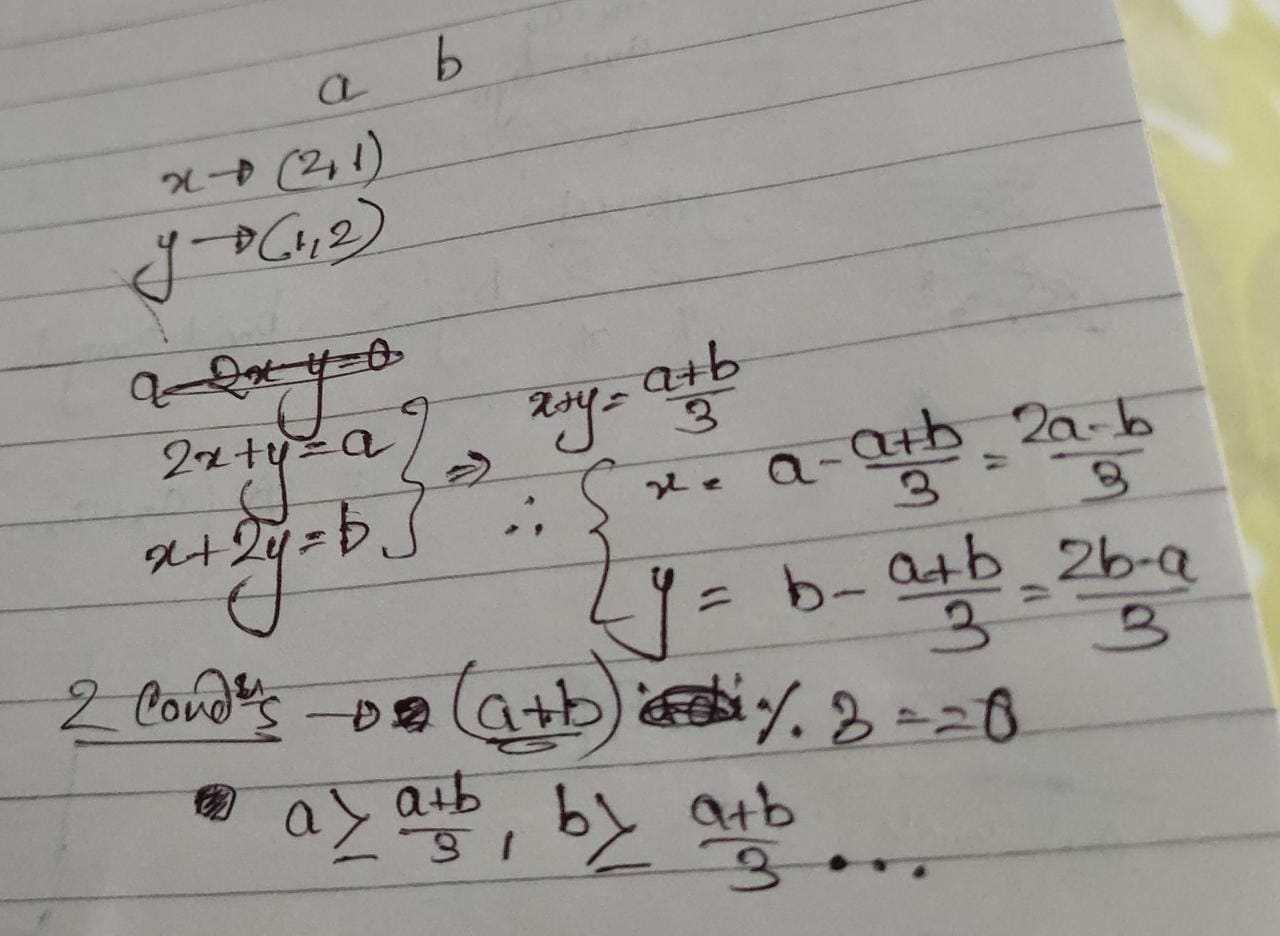 a b
x → (2,1)
y → (1,2)
a-2x-y=0
2x+y=a
x+2y=b
} ⇒ x+y = a+b/3
∴ { x = a - a+b/3 = 2a-b/3
y = b - a+b/3 = 2b-a/3
2 Condns → (a+b) % 3 ==0
a ≥ a+b/3 , b ≥ a+b/3 ...